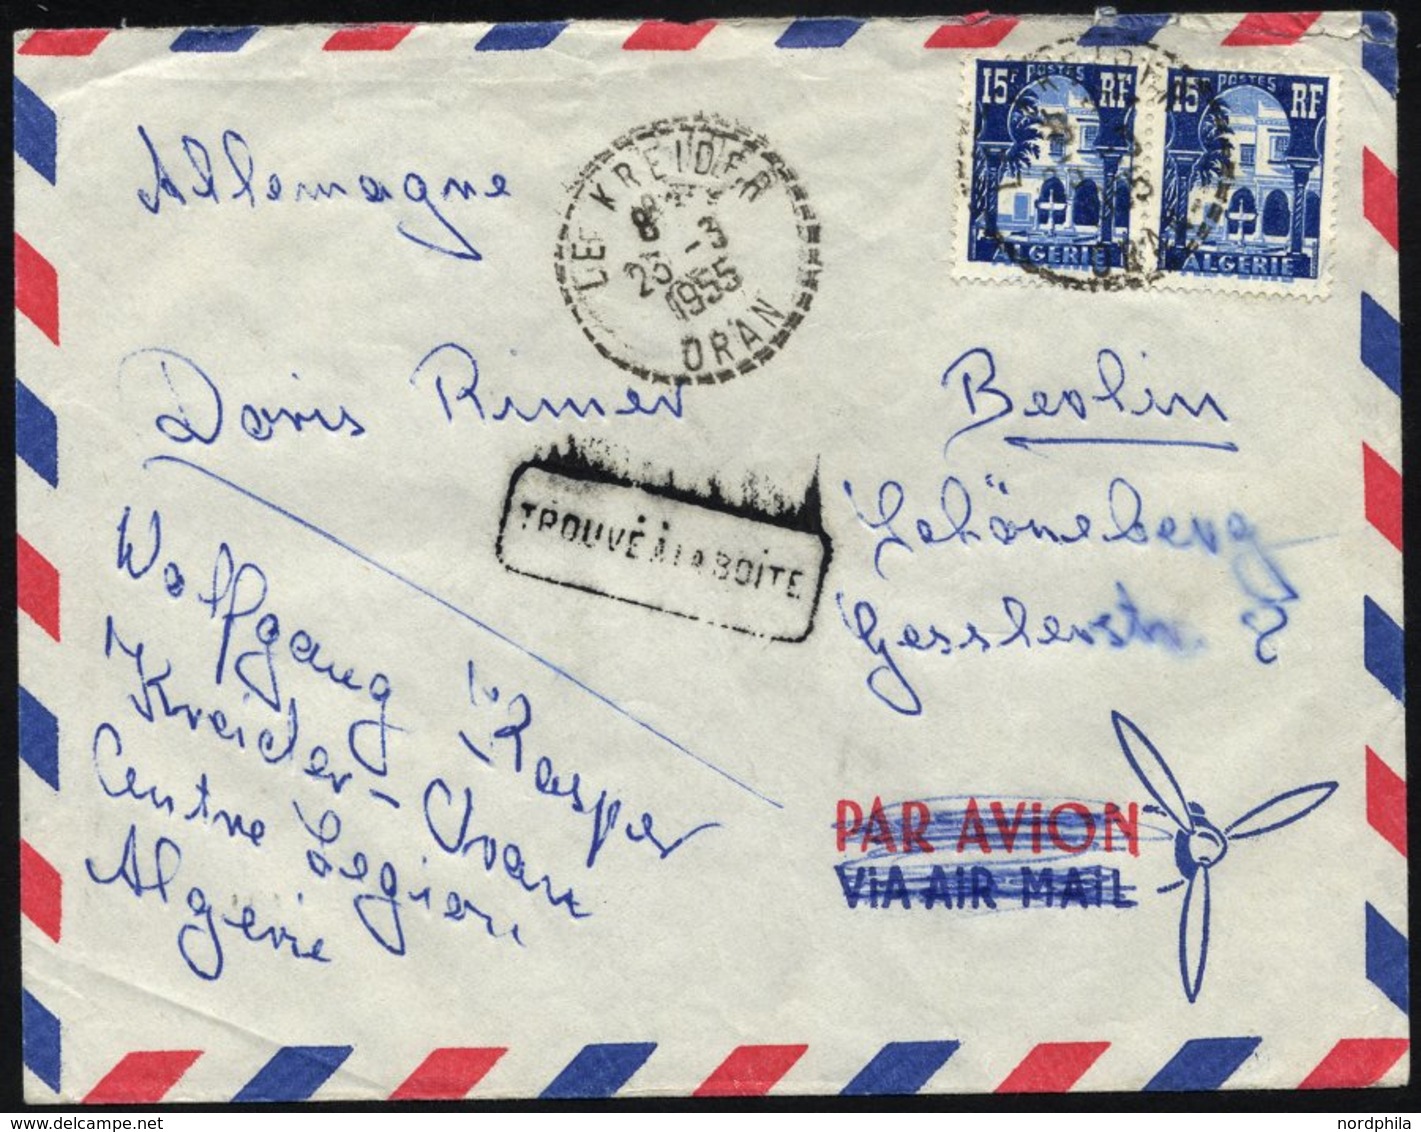 15F POSTES RF
ALGERIE
15F POSTES RF
ALGERIE
Allemagne
LE KREIDER
8H
23 -3
1955
ORAN
Doris Rimer
Berlin
TROUVÉ À LA BOITE
Schöneberg
Gesslerstr. 2
Wolfgang Kasper
Kreider-Oran
Centre Legion
Algerie
PAR AVION
VIA AIR MAIL
nordphila